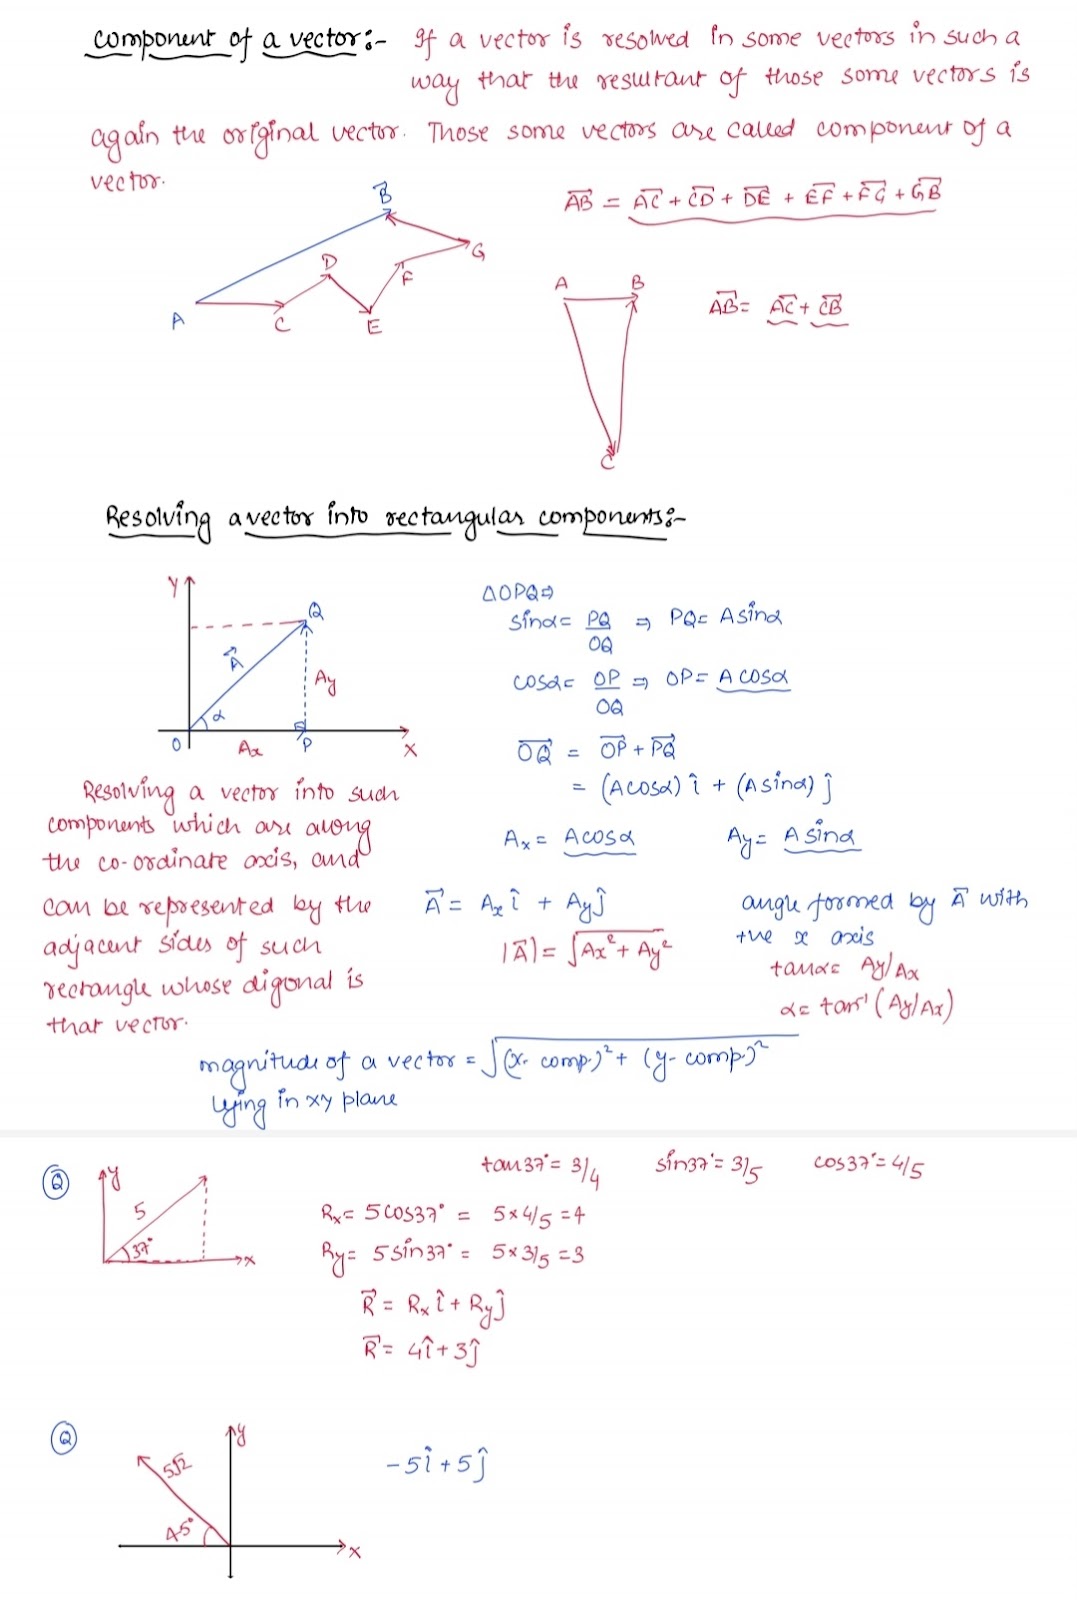 component of a vector:- If a vector is resolved in some vectors in such a
way that the resultant of those some vectors is
again the original vector. Those some vectors are called component of a
vector.
B⃗
A
C
D
E
F
G
A⃗B = A⃗C + C⃗D + D⃗E + E⃗F + F⃗G + G⃗B
A B
C
A⃗B = A⃗C + C⃗B
Resolving a vector into rectangular components:-
Y
Q
A⃗
Ay
α
O
Ax
P
X
ΔOPQ⇒
sinα = PQ/OQ ⇒ PQ = A sinα
cosα = OP/OQ ⇒ OP = A cosα
O⃗Q = O⃗P + P⃗Q
= (A cosα) î + (A sinα) ĵ
Ax = A cosα Ay = A sinα
Resolving a vector into such
components which are along
the co-ordinate axis, and
can be represented by the
adjacent sides of such
rectangle whose digonal is
that vector.
A⃗ = Ax î + Ay ĵ
|A⃗| = √(Ax² + Ay²)
angle formed by A⃗ with
+ve x axis
tanα = Ay/Ax
α = tan⁻¹ (Ay/Ax)
magnitude of a vector = √((x-comp.)² + (y-comp.)²)
lying in xy plane
Q
y
5
37°
x
tan37° = 3/4 sin37° = 3/5 cos37° = 4/5
Rx = 5 cos37° = 5×4/5 = 4
Ry = 5 sin37° = 5×3/5 = 3
R⃗ = Rx î + Ry ĵ
R⃗ = 4î + 3ĵ
Q
y
5√2
45°
x
-5î + 5ĵ